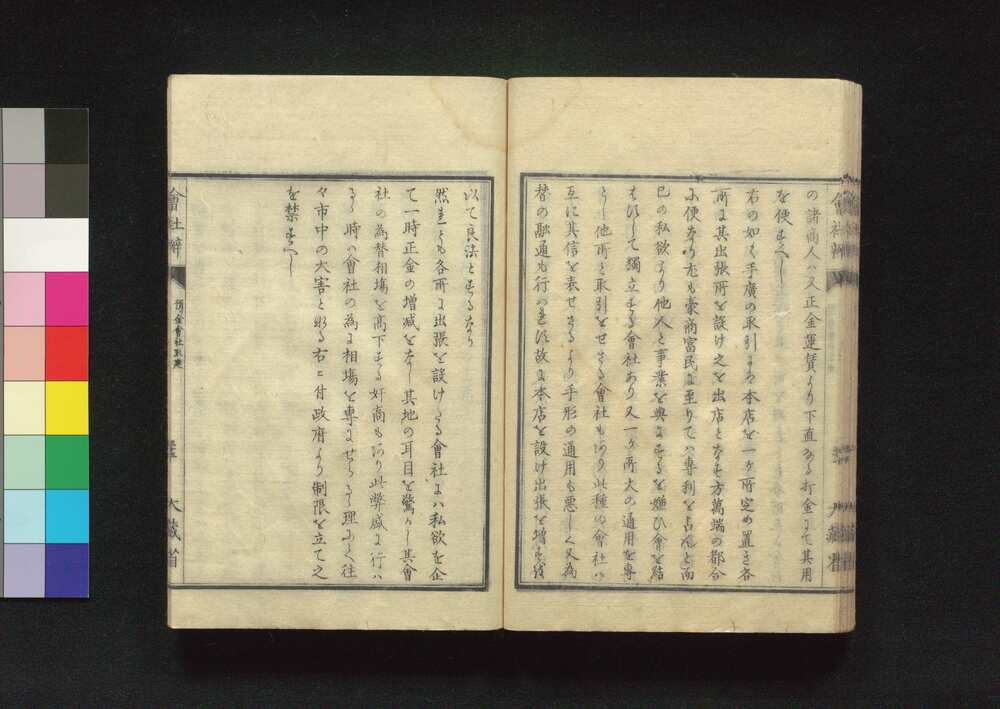 の諸商人ハ又正金運賃より下直なる打金にて其用
を便すへし
右の如く手廣の取引にハ本店を一ヶ所定め置き各
所に其出張所を設け之を出店となす方萬端の都合
に便なり尤も豪商富民に至りてハ專利を占んと而
已の私欲より他人と事業を與にするを嫌ひ會を結
はすして獨立する會社あり又一ヶ所大の通用を專
らとし他所と取引をせさる會社もあり此種の會社ハ
互に其信を表せさるより手形の通用も悪しく又為
替の融通も行ハれす故に本店を設け出張を増すを
以て良法とするなり
然れとも各所に出張を設けたる會社にハ私欲を企
て一時正金の増减をなし其地の耳目を驚かし其會
社の為替相塲を高下する奸商もあり此弊盛に行ハ
るゝ時ハ會社の為に相塲を專にせらるゝ理にて往
々市中の大害と成る右ニ付政府より制限を立て之
を禁すへし
會社辨
預金會社取建
大藏省